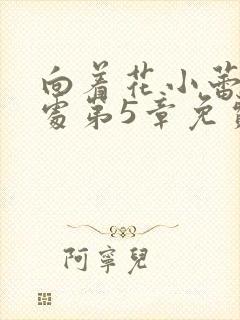 向着花小蕾
处第5章免费
阿寧兒